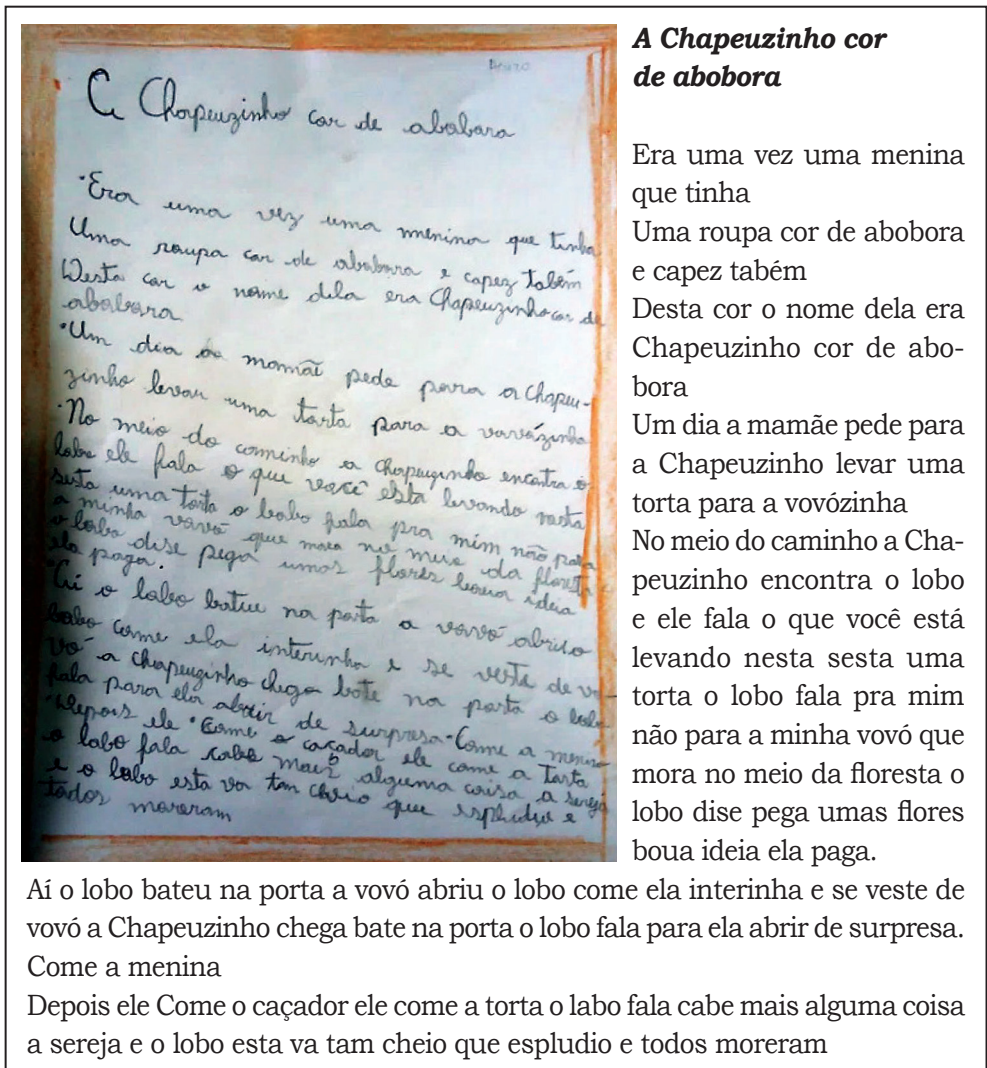 Arturo
A Chapeuzinho cor de abobora
Era uma vez uma menina que tinha
Uma roupa cor de abobora e capez tabém
Desta cor o nome dela era Chapeuzinho cor de
abobora
Um dia a mamãe pede para a Chapeu-
zinho levar uma torta para a vovózinha
No meio do caminho a Chapeuzinho encontra o
lobo ele fala o que você esta levando nesta
sesta uma torta o lobo fala pra mim não para
a minha vovó que mora no meio da floresta o
o lobo dise pega umas flores boua ideia
ela paga.
Aí o lobo bateu na porta a vovó abriu o
lobo come ela interinha e se veste de vo-
vó a chapeuzinho chega bate na porta o lobo
fala para ela abrir de surpresa Come a menina
Depois ele Come o caçador ele come a torta
o labo fala cabe mais alguma coisa a sereja
e o lobo esta va tam cheio que espludiu e
todos moreram
A Chapeuzinho cor
de abobora
Era uma vez uma menina
que tinha
Uma roupa cor de abobora
e capez tabém
Desta cor o nome dela era
Chapeuzinho cor de abo-
bora
Um dia a mamãe pede para
a Chapeuzinho levar uma
torta para a vovózinha
No meio do caminho a Cha-
peuzinho encontra o lobo
e ele fala o que você está
levando nesta sesta uma
torta o lobo fala pra mim
não para a minha vovó que
mora no meio da floresta o
lobo dise pega umas flores
boua ideia ela paga.
Aí o lobo bateu na porta a vovó abriu o lobo come ela interinha e se veste de
vovó a Chapeuzinho chega bate na porta o lobo fala para ela abrir de surpresa.
Come a menina
Depois ele Come o caçador ele come a torta o labo fala cabe mais alguma coisa
a sereja e o lobo esta va tam cheio que espludio e todos moreram